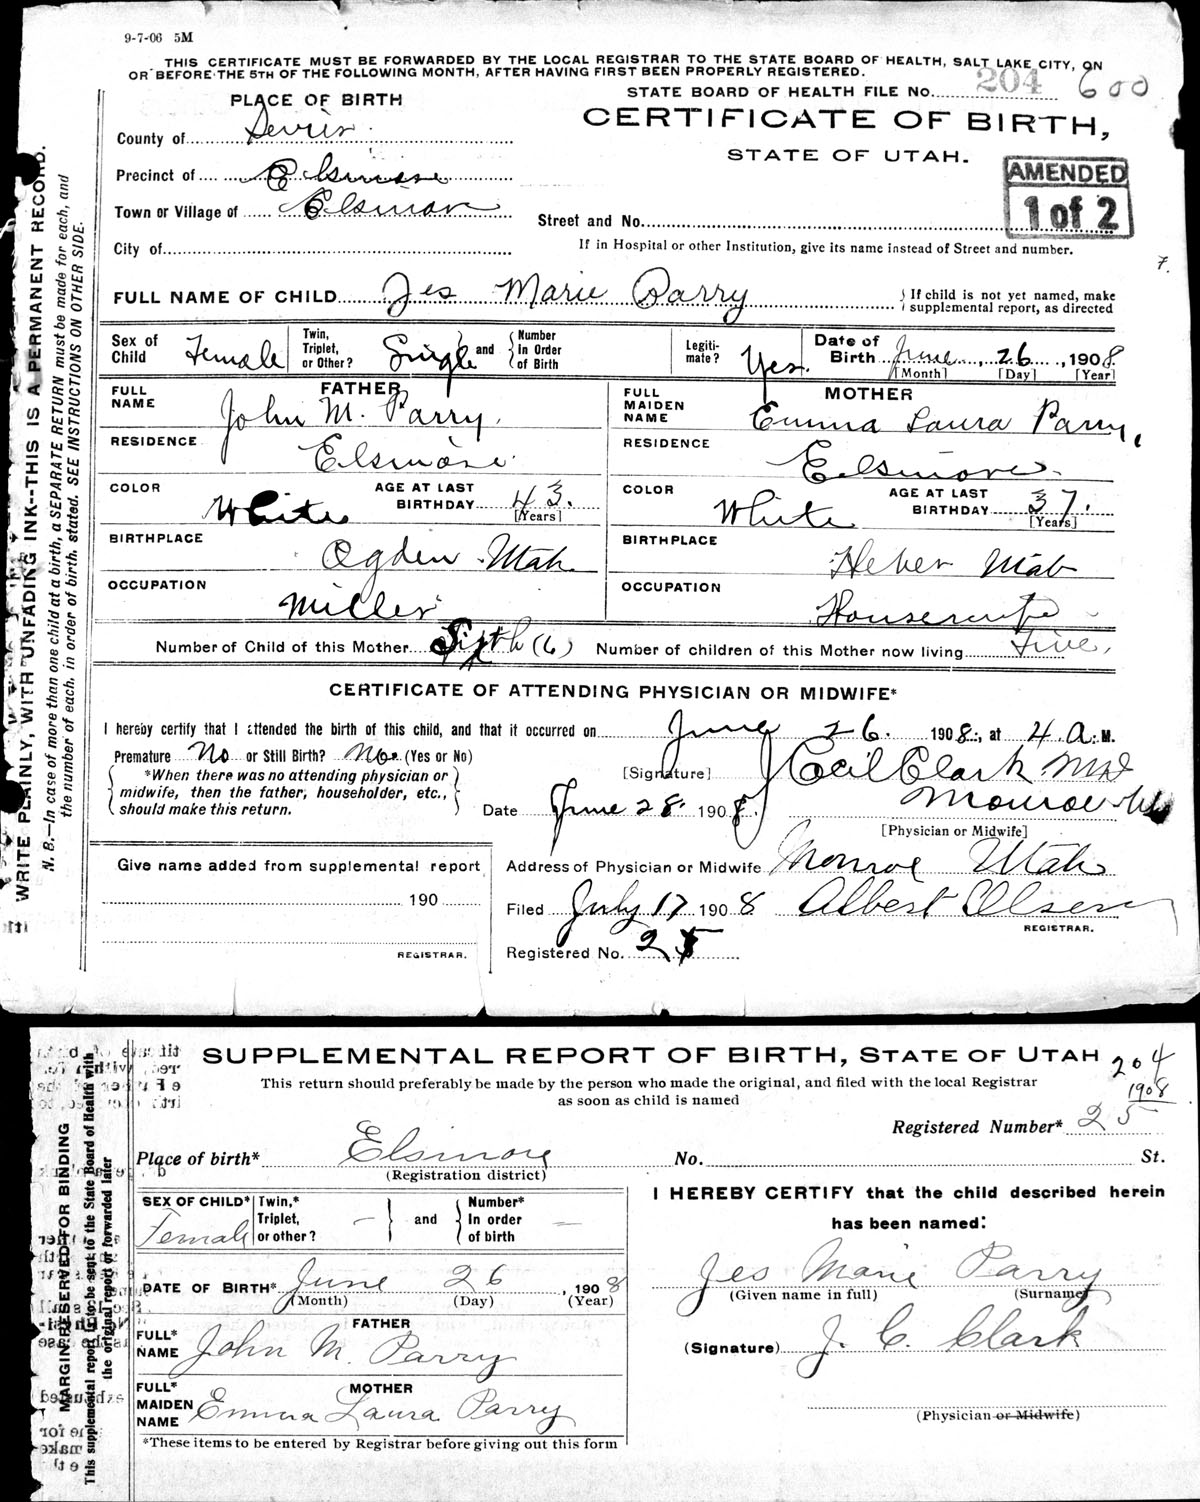 9-7-06 5M
THIS CERTIFICATE MUST BE FORWARDED BY THE LOCAL REGISTRAR TO THE STATE BOARD OF HEALTH, SALT LAKE CITY, ON
OR BEFORE THE 5TH OF THE FOLLOWING MONTH, AFTER HAVING FIRST BEEN PROPERLY REGISTERED.
STATE BOARD OF HEALTH FILE No. 204 600
PLACE OF BIRTH
CERTIFICATE OF BIRTH,
STATE OF UTAH.
AMENDED
1 of 2
County of Sevier
Precinct of Elsinore
Town or Village of Elsinore
Street and No.
City of
If in Hospital or other Institution, give its name instead of Street and number.
7.
FULL NAME OF CHILD Jes Marie Parry
If child is not yet named, make
supplemental report, as directed
Sex of Child Female Twin, Triplet, or Other? Single and Number In Order of Birth Legiti-mate? Yes. Date of Birth June, 26, 1908
[Month] [Day] [Year]
FATHER
FULL NAME John M. Parry.
MOTHER
FULL MAIDEN NAME Emma Laura Parry,
RESIDENCE Elsinore
RESIDENCE Elsinore.
COLOR White AGE AT LAST BIRTHDAY 43. [Years]
COLOR White AGE AT LAST BIRTHDAY 37. [Years]
BIRTHPLACE Ogden Utah.
BIRTHPLACE Heber Utah
OCCUPATION Miller
OCCUPATION Housewife
Number of Child of this Mother Sixth (6) Number of children of this Mother now living Five.
CERTIFICATE OF ATTENDING PHYSICIAN OR MIDWIFE*
I hereby certify that I attended the birth of this child, and that it occurred on June 26. 1908., at 4 A. M.
Premature No or Still Birth? No. (Yes or No)
*When there was no attending physician or
midwife, then the father, householder, etc.,
should make this return.
[Signature] J Cecil Clark MD
Monroe
Date June 28. 1908.
[Physician or Midwife]
Give name added from supplemental report
190
REGISTRAR.
Address of Physician or Midwife Monroe Utah
Filed July 17 1908 Albert Olsen
REGISTRAR.
Registered No. 25
WRITE PLAINLY, WITH UNFADING INK--THIS IS A PERMANENT RECORD.
N. B.—In case of more than one child at a birth, a SEPARATE RETURN must be made for each, and
the number of each, in order of birth, stated. SEE INSTRUCTIONS ON OTHER SIDE.
SUPPLEMENTAL REPORT OF BIRTH, STATE OF UTAH
204
1908
This return should preferably be made by the person who made the original, and filed with the local Registrar
as soon as child is named
Registered Number* 25
Place of birth* Elsinore No. St.
(Registration district)
SEX OF CHILD* Female Twin,* Triplet, or other? — and Number* In order of birth —
I HEREBY CERTIFY that the child described herein
has been named:
DATE OF BIRTH* June 26, 1908
(Month) (Day) (Year)
Jes Marie Parry
(Given name in full) (Surname)
FATHER
FULL* NAME John M. Parry
(Signature) J. C. Clark
MOTHER
FULL* MAIDEN NAME Emma Laura Parry
(Physician or Midwife)
*These items to be entered by Registrar before giving out this form
MARGIN RESERVED FOR BINDING
This supplemental report is to be sent to the State Board of Health with
the original report or forwarded later